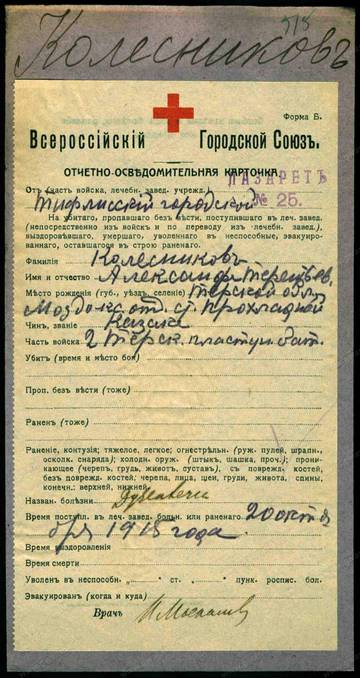 518
Колесниковъ
Форма Б.
Всероссійскій Городской Союзъ.
ОТЧЕТНО-ОСВѢДОМИТЕЛЬНАЯ КАРТОЧКА
ЛАЗАРЕТЪ
№ 25.
Отъ (часть войска, лечебн. завед. учрежд.)
Тифлисскій городской
На убитаго, пропавшаго безъ вѣсти, поступившаго въ леч. завед.
(непосредственно изъ войскъ и по переводу изъ лечебн. завед.),
выздоровѣвшаго, умершаго, уволеннаго въ неспособные, эвакуиро-
ваннаго, оставшагося въ строю раненаго.
Фамилія Колесниковъ
Имя и отчество Александръ Терентьев.
Мѣсто рожденія (губ., уѣздъ, селеніе) Терской обл.
Моздокск. отд. ст. Прохладной
Чинъ, званіе Казакъ
Часть войска 2 Терск. пластун. бат.
Убитъ (время и мѣсто боя)
Проп. безъ вѣсти (тоже)
Раненъ (тоже)
Раненіе, контузія; тяжелое, легкое; огнестрѣльн. (руж. пулей, шрапн.,
осколк. снаряда); холодн. оруж. (штыкъ, шашка, проч.); прони-
кающее (черепъ, грудь, животъ, суставъ), съ поврежд. костей,
безъ поврежд. костей; черепа, лица, шеи, груди, живота, спины,
конечн.: верхней, нижней.
Назван. болѣзни
Время поступл. въ леч. завед. больн. или раненаго. 20 октя
бря 1915 года
Время выздоровленія
Время смерти
Уволенъ въ неспособн. „ “ ст. „ “ пунк. роспис. бол.
Эвакуированъ (когда и куда)
Врачъ